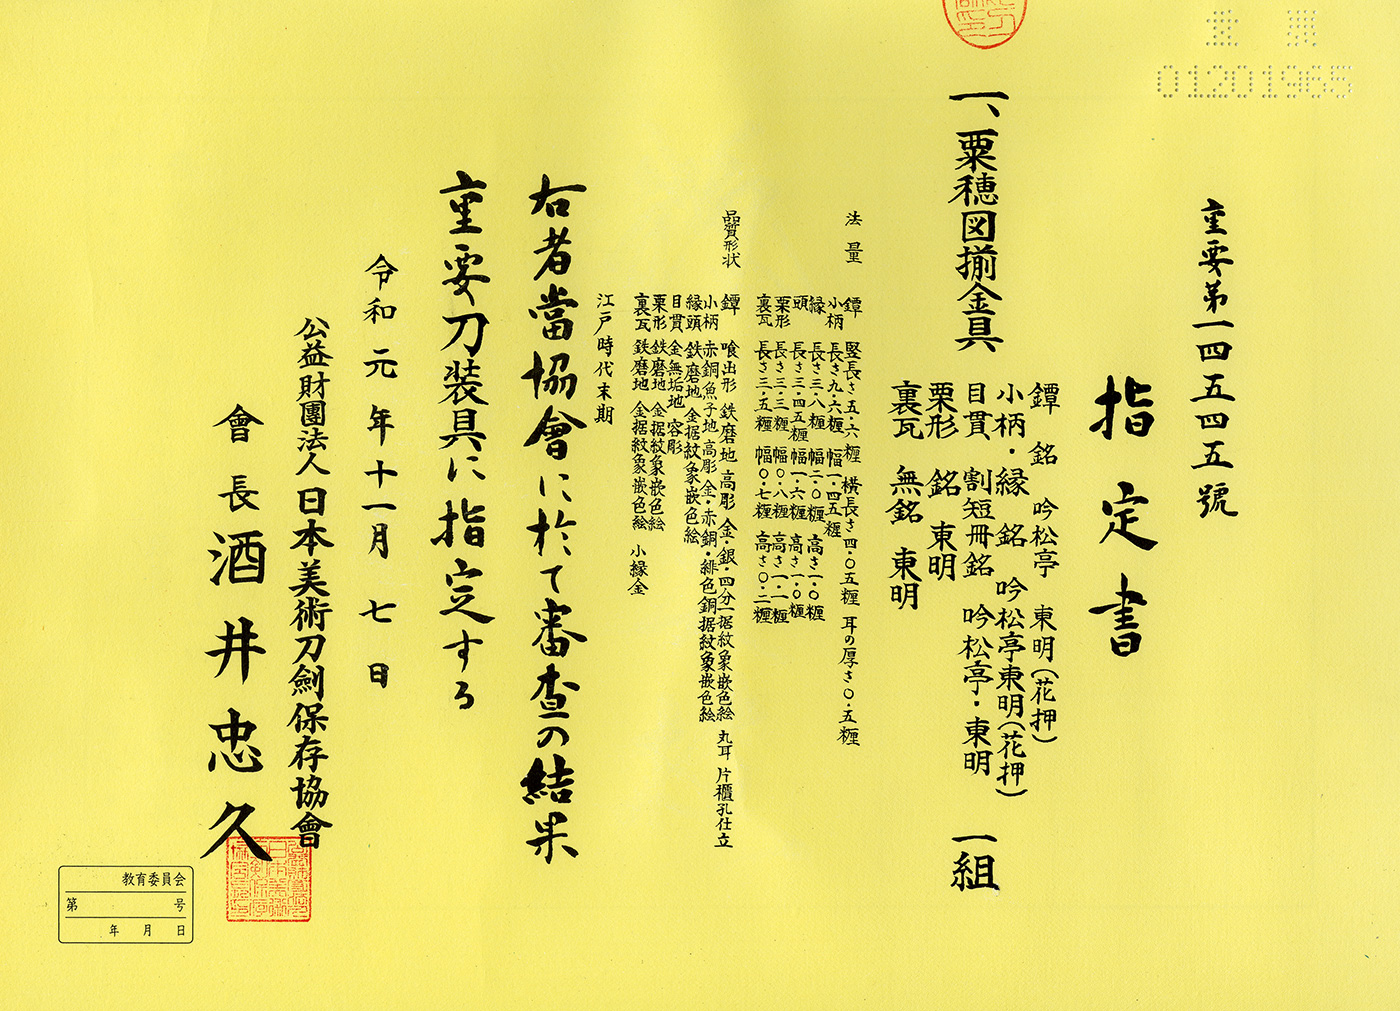 重要
01201965
重要第一四五四五號
指定書
一、粟穂図揃金具 一組
鐔 銘 吟松亭 東明(花押)
小柄・縁 銘 吟松亭東明(花押)
目貫 割短冊銘 吟松亭・東明
栗形 銘 東明
裏瓦 無銘 東明
法量
鐔 竪長さ五・六糎 横長さ四・〇五糎 耳の厚さ〇・五糎
小柄 長さ九・六糎 幅一・四五糎
縁 長さ三・八糎 幅二・〇糎 高さ一・〇糎
頭 長さ三・四五糎 幅一・六糎 高さ一・〇糎
栗形 長さ三・三糎 幅〇・八糎 高さ一・一糎
裏瓦 長さ三・五糎 幅〇・七糎 高さ〇・二糎
品質形状
鐔 喰出形 鉄磨地 高彫 金・銀・四分一据紋象嵌色絵 丸耳 片櫃孔仕立
小柄 赤銅魚子地 高彫 金・赤銅・緋色銅据紋象嵌色絵
縁頭 鉄磨地 金据紋象嵌色絵
目貫 金無垢地 容彫
栗形 鉄磨地 金据紋象嵌色絵
裏瓦 鉄磨地 金据紋象嵌色絵 小縁金
江戸時代末期
右者當協會に於て審査の結果
重要刀装具に指定する
令和元年十一月七日
公益財團法人日本美術刀劍保存協會
會長 酒井忠久
教育委員会
第 号
年 月 日